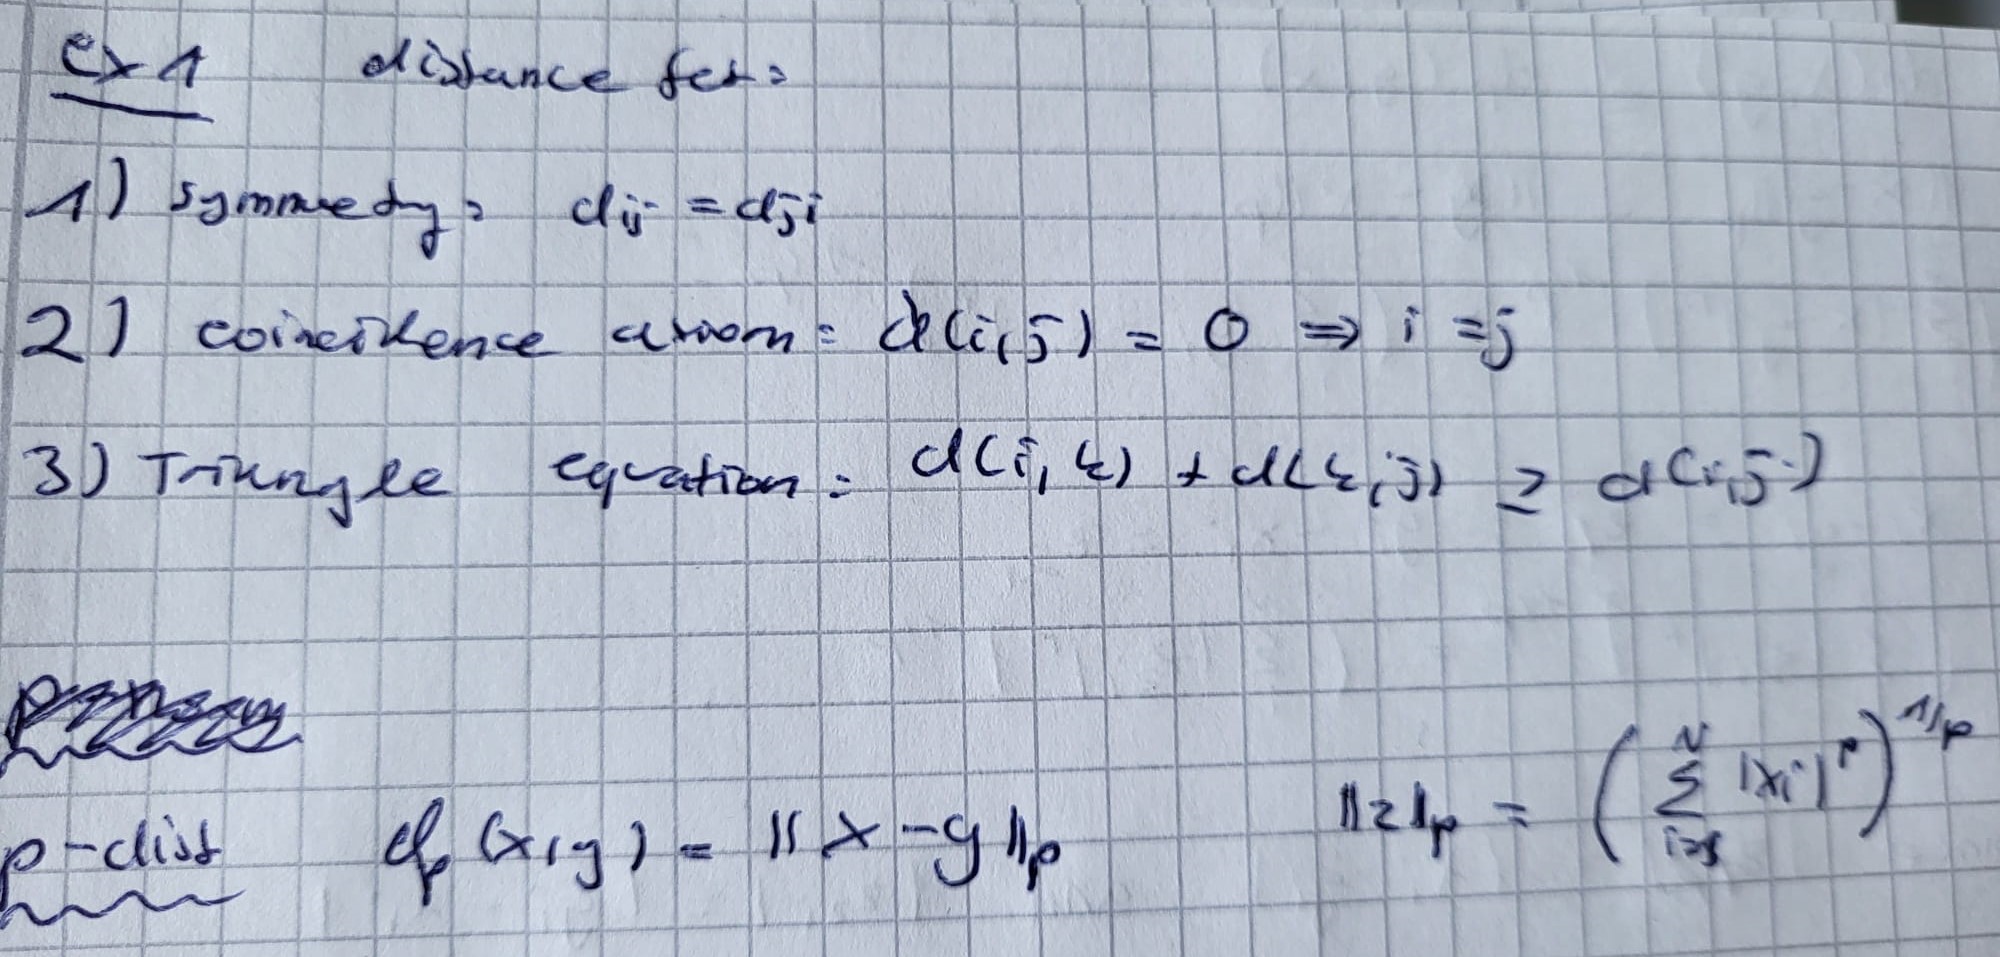 ex 1 distance fct:
1) symmetry: dij = dji
2) coincidence axiom: d(i,j) = 0 ⇒ i = j
3) Triangle equation: d(i,k) + d(k,j) ≥ d(i,j)
p-dist dp(x,y) = ||x-y||p ||z||p = (∑_{i=1}^{N} |xi|^p)^{1/p}